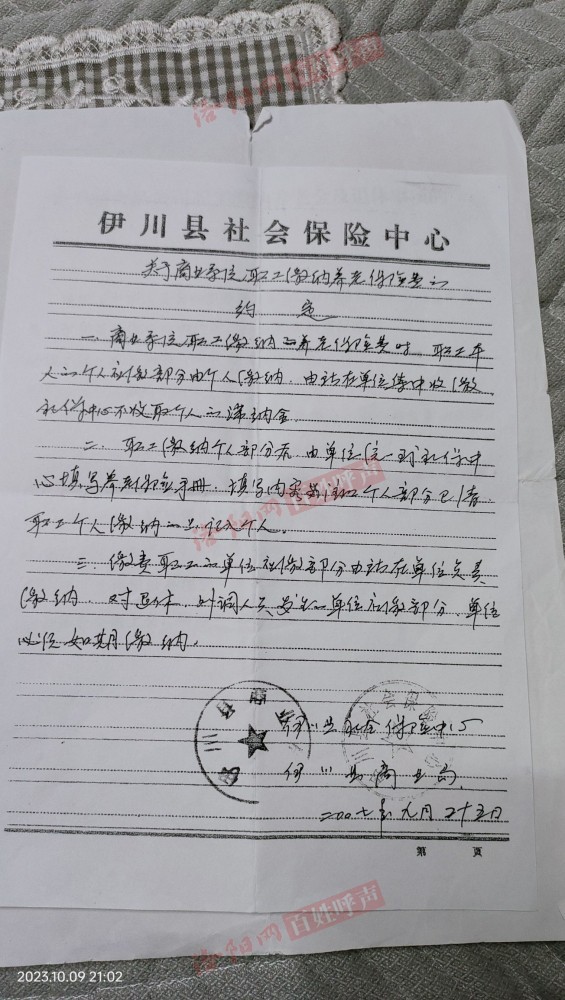 洛阳网 百姓呼声
伊川县社会保险中心
关于商业系统职工缴纳养老保险费的
约定
一、商业系统职工缴纳的养老保险费时,职工本
人的个人应缴部分由个人缴纳,由站在单位集中收缴,
社保中心不收取个人的滞纳金。
二、职工缴纳个人部分后,由单位统一到社保中
心填写养老保险手册,填写内容
职工个人缴纳的
三、缴费职工的单位应缴部分由站在单位负责
缴纳,对退休、外调人员 单位应缴部分,单位
必须如期缴纳。
洛阳网 百姓呼声
伊川县社会保险中心
伊川县商业局
二00七年元月二十五日
第 页
洛阳网 百姓呼声
2023.10.09 21:02